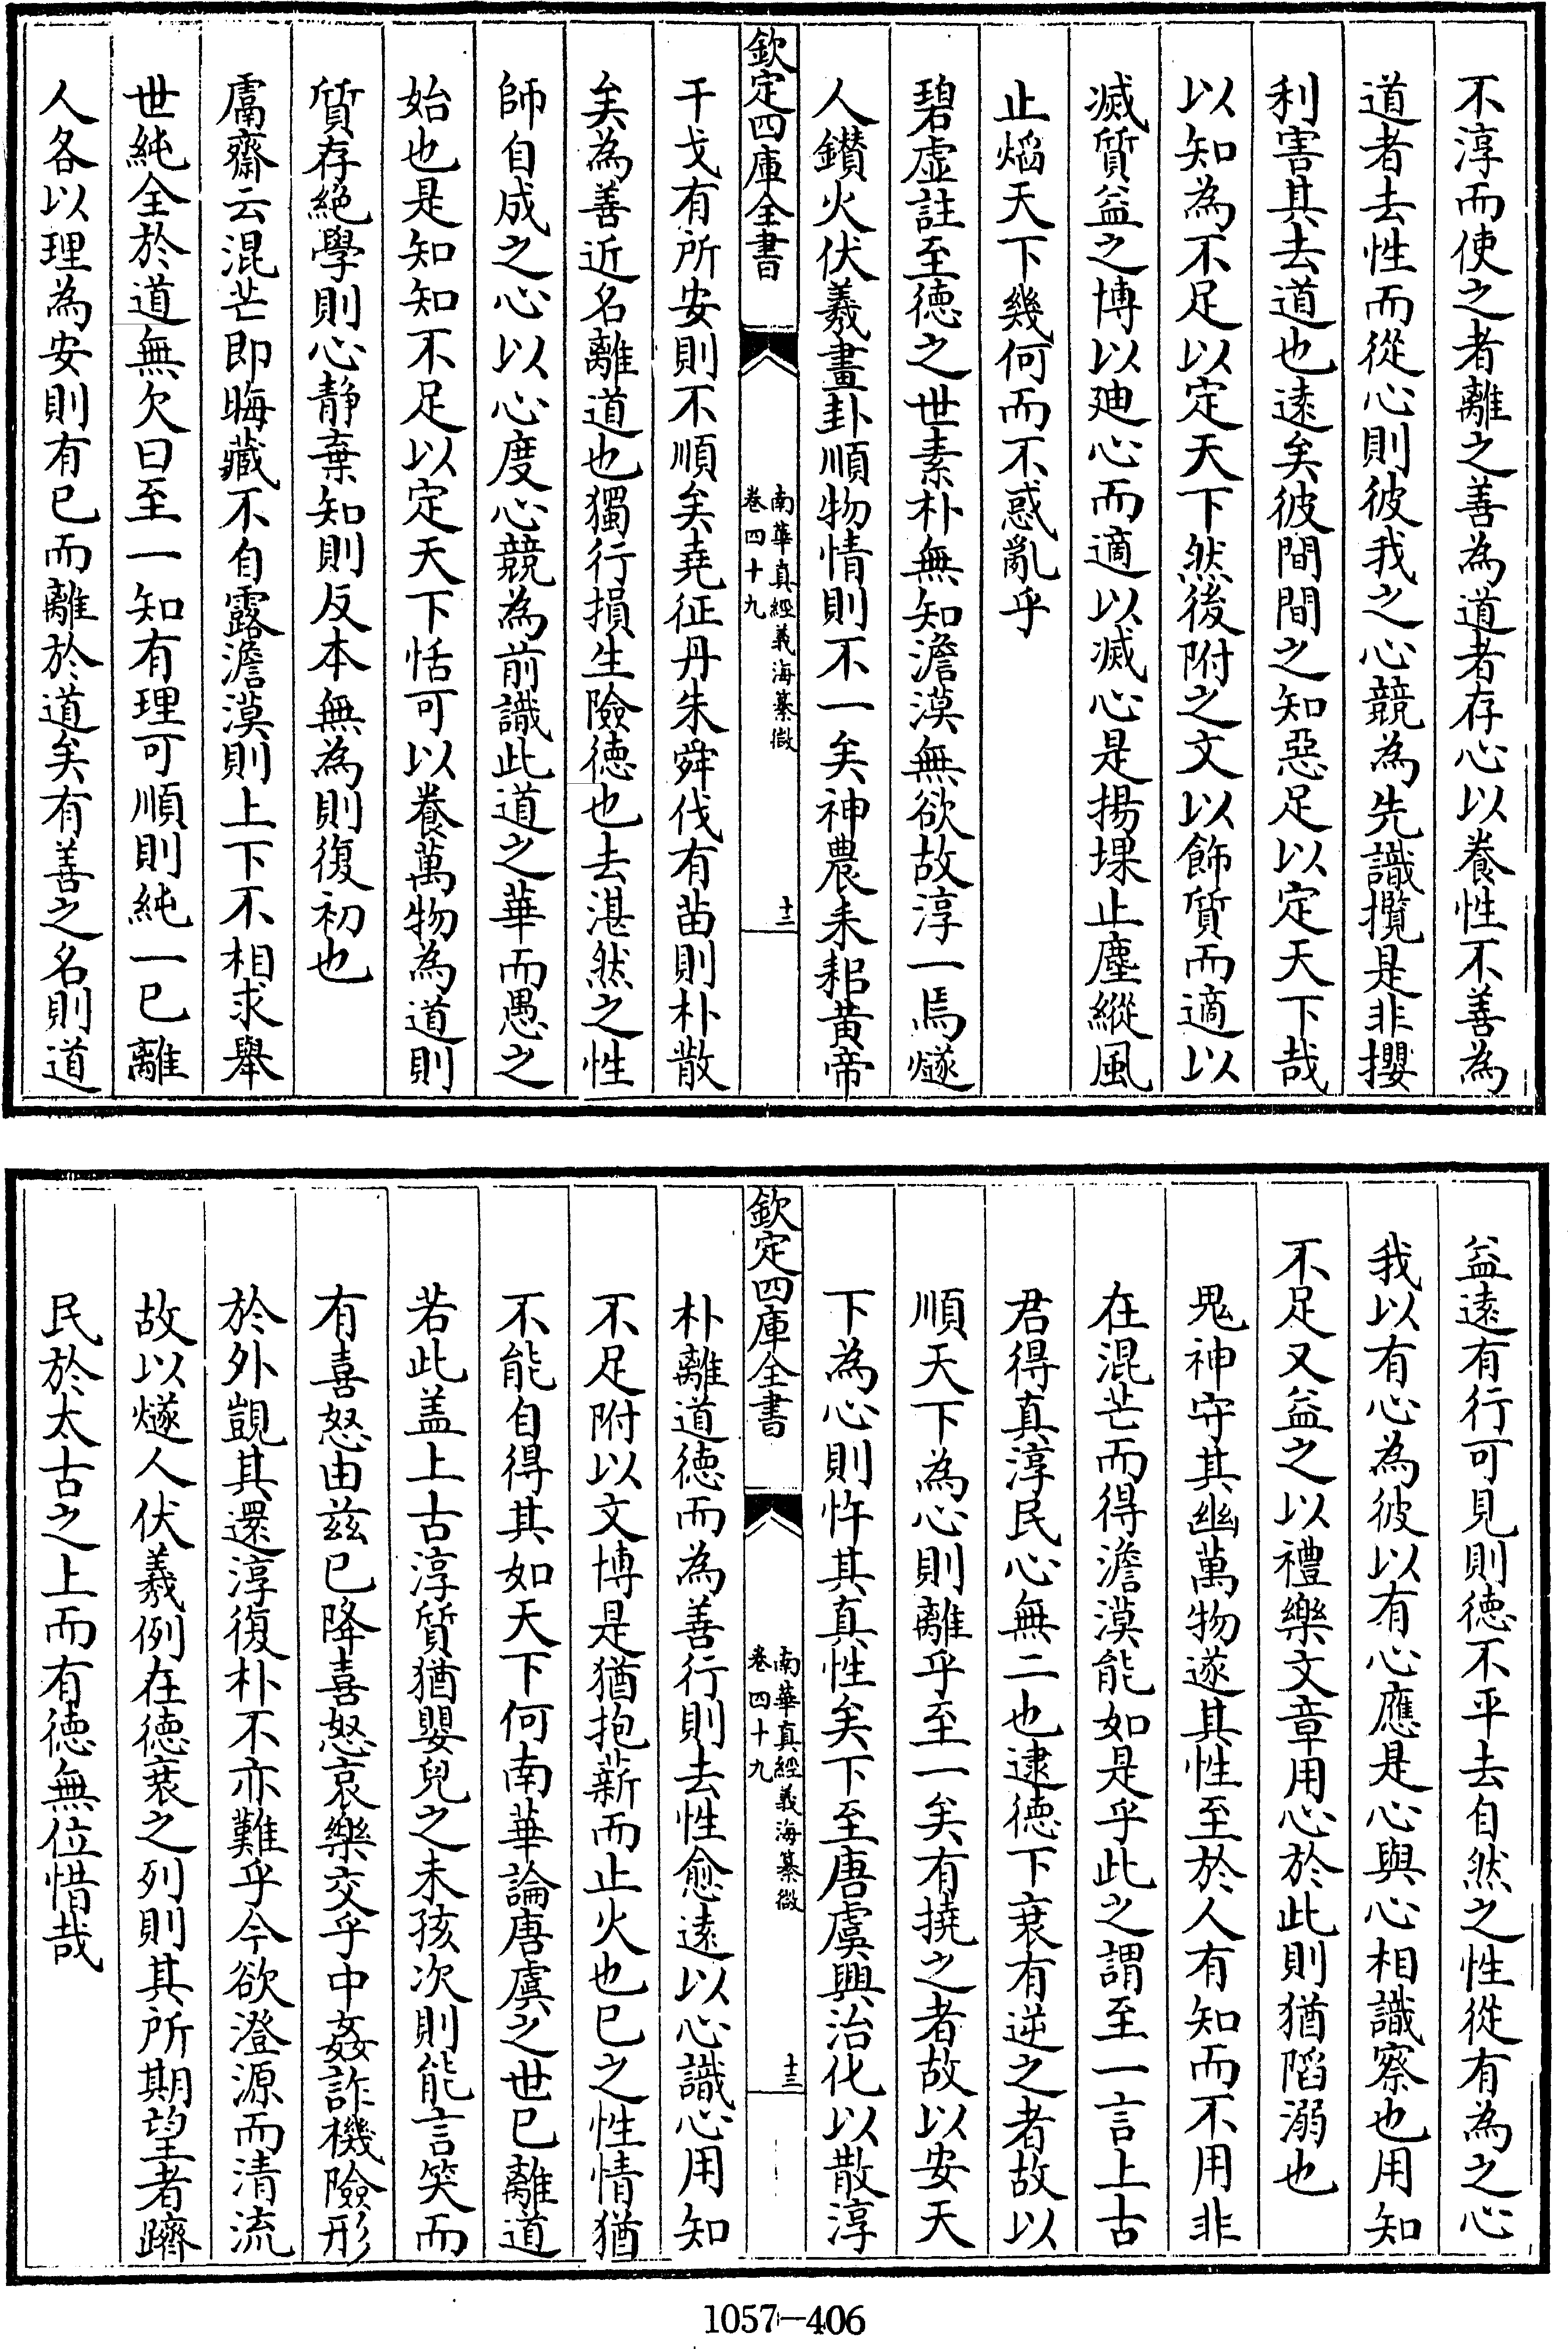 不淳而使之者離之善為道者存心以養性不善為
道者去性而從心則彼我之心競為先識攬是非攖
利害其去道也逺矣彼間間之知惡足以定天下哉
以知為不足以定天下然後附之文以飾質而適以
滅質益之博以廸心而適以滅心是揚堁止塵縱風
止熖天下幾何而不惑亂乎
碧虛註至徳之世素朴無知澹漠無欲故淳一焉燧
人鑽火伏羲畫卦順物情則不一矣神農耒耜黄帝
欽定四庫全書
南華真經義海纂微
卷四十九
十三
干戈有所安則不順矣堯征丹朱舜伐有苗則朴散
矣為善近名離道也獨行損生險徳也去湛然之性
師自成之心以心度心競為前識此道之華而愚之
始也是知知不足以定天下恬可以養萬物為道則
質存絶學則心静棄知則反本無為則復初也
鬳齋云混芒即晦藏不自露澹漠則上下不相求舉
世純全於道無欠曰至一知有理可順則純一已離
人各以理為安則有已而離於道矣有善之名則道
益逺有行可見則徳不平去自然之性從有為之心
我以有心為彼以有心應是心與心相識察也用知
不足又益之以禮樂文章用心於此則猶陷溺也
鬼神守其幽萬物遂其性至於人有知而不用非
在混芒而得澹漠能如是乎此之謂至一言上古
君得真淳民心無二也逮徳下衰有逆之者故以
順天下為心則離乎至一矣有撓之者故以安天
下為心則忤其真性矣下至唐虞興治化以散淳
欽定四庫全書
南華真經義海纂微
卷四十九
十三
朴離道徳而為善行則去性愈逺以心識心用知
不足附以文博是猶抱薪而止火也已之性情猶
不能自得其如天下何南華論唐虞之世已離道
若此盖上古淳質猶嬰兒之未孩次則能言笑而
有喜怒由兹已降喜怒哀樂交乎中姦詐機險形
於外覬其還淳復朴不亦難乎今欲澄源而清流
故以燧人伏羲例在徳衰之列則其所期望者躋
民於太古之上而有徳無位惜哉
1057-406